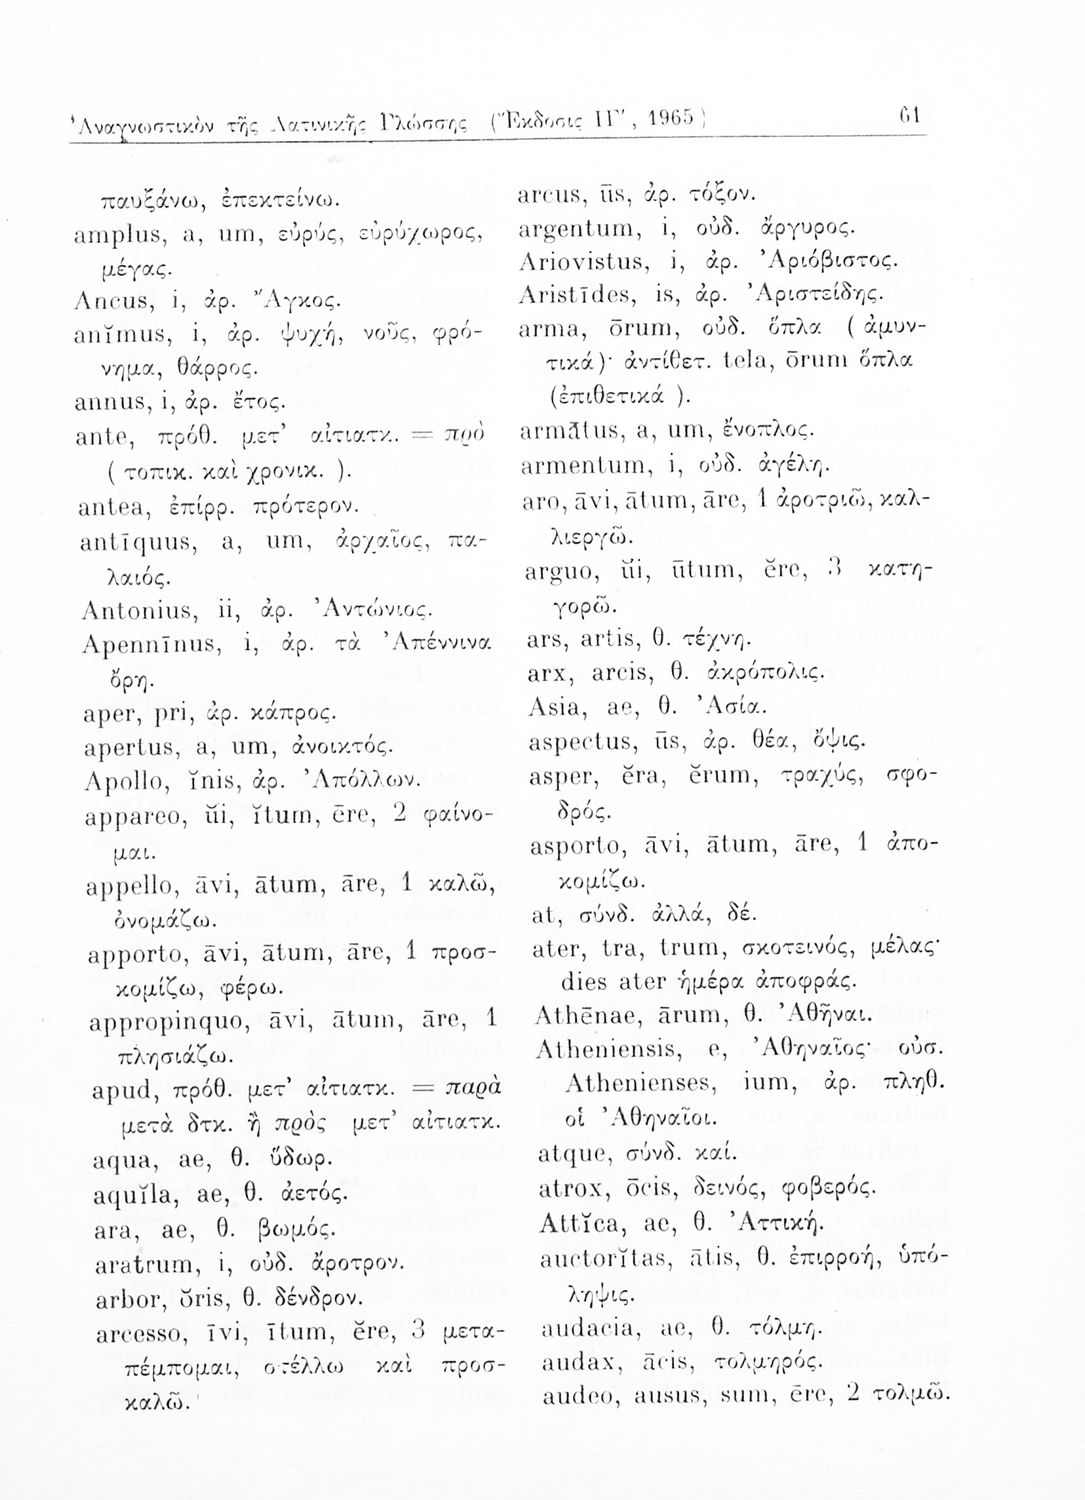 Ἀναγνωστικὸν τῆς Λατινικῆς Γλώσσης (Ἔκδοσις ΙΓ′, 1965)
61
παυξάνω, ἐπεκτείνω.
amplus, a, um, εὐρύς, εὐρύχωρος,
μέγας.
Ancus, i, ἀρ. Ἄγκος.
anĭmus, i, ἀρ. ψυχή, νοῦς, φρό-
νημα, θάρρος.
annus, i, ἀρ. ἔτος.
ante, πρόθ. μετ’ αἰτιατκ. = πρὸ
( τοπικ. καὶ χρονικ. ).
antea, ἐπίρρ. πρότερον.
antīquus, a, um, ἀρχαῖος, πα-
λαιός.
Antonius, ii, ἀρ. Ἀντώνιος.
Apennīnus, i, ἀρ. τὰ Ἀπέννινα
ὄρη.
aper, pri, ἀρ. κάπρος.
apertus, a, um, ἀνοικτός.
Apollo, ĭnis, ἀρ. Ἀπόλλων.
appareo, ŭi, ĭtum, ēre, 2 φαίνο-
μαι.
appello, āvi, ātum, āre, 1 καλῶ,
ὀνομάζω.
apporto, āvi, ātum, āre, 1 προσ-
κομίζω, φέρω.
appropinquo, āvi, ātum, āre, 1
πλησιάζω.
apud, πρόθ. μετ’ αἰτιατκ. = παρὰ
μετὰ δτκ. ἢ πρὸς μετ’ αἰτιατκ.
aqua, ae, θ. ὕδωρ.
aquĭla, ae, θ. ἀετός.
ara, ae, θ. βωμός.
aratrum, i, οὐδ. ἄροτρον.
arbor, ŏris, θ. δένδρον.
arcesso, īvi, ītum, ĕre, 3 μετα-
πέμπομαι, στέλλω καὶ προσ-
καλῶ.
arcus, ūs, ἀρ. τόξον.
argentum, i, οὐδ. ἄργυρος.
Ariovistus, i, ἀρ. Ἀριόβιστος.
Aristīdes, is, ἀρ. Ἀριστείδης.
arma, ōrum, οὐδ. ὅπλα ( ἀμυν-
τικά)· ἀντίθετ. tela, ōrum ὅπλα
(ἐπιθετικά ).
armātus, a, um, ἔνοπλος.
armentum, i, οὐδ. ἀγέλη.
aro, āvi, ātum, āre, 1 ἀροτριῶ, καλ-
λιεργῶ.
arguo, ŭi, ūtum, ĕre, 3 κατη-
γορῶ.
ars, artis, θ. τέχνη.
arx, arcis, θ. ἀκρόπολις.
Asia, ae, θ. Ἀσία.
aspectus, ūs, ἀρ. θέα, ὄψις.
asper, ĕra, ĕrum, τραχύς, σφο-
δρός.
asporto, āvi, ātum, āre, 1 ἀπο-
κομίζω.
at, σύνδ. ἀλλά, δέ.
ater, tra, trum, σκοτεινός, μέλας·
dies ater ἡμέρα ἀποφράς.
Athēnae, ārum, θ. Ἀθῆναι.
Atheniensis, e, Ἀθηναῖος· οὐσ.
Athenienses, ium, ἀρ. πληθ.
οἱ Ἀθηναῖοι.
atque, σύνδ. καί.
atrox, ōcis, δεινός, φοβερός.
Attĭca, ae, θ. Ἀττική.
auctorĭtas, ātis, θ. ἐπιρροή, ὑπό-
ληψις.
audacia, ae, θ. τόλμη.
audax, ācis, τολμηρός.
audeo, ausus, sum, ēre, 2 τολμῶ.